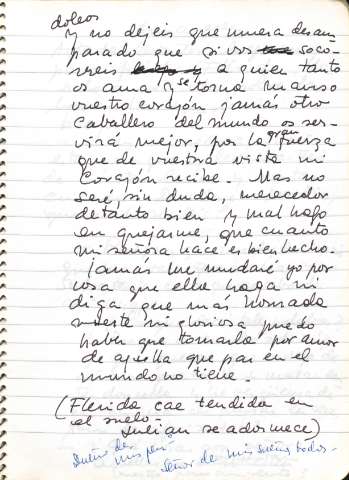 doleos
y no dejéis que muera desam-
parado que si vos soco-
rreis a quien tanto
os ama y se torna manso
vuestro corazón jamás otro
Caballero del mundo os ser-
virá mejor, por la gran fuerza
que de vuestra vista mi
Corazón recibe. Mas no
seré, sin duda, merecedor
de tanto bien y mal hago
en quejarme, que cuanto
mi señora hace es bien hecho.
Jamás me mudaré yo por
cosa que ella haga ni
diga que más honrada
muerte ni gloriosa puedo
haber que tomarla por amor
de aquella que par en el
mundo no tiene.
(Flerida cae tendida en
el suelo.
Julian se adormece)
Señor de mis sueños todos.